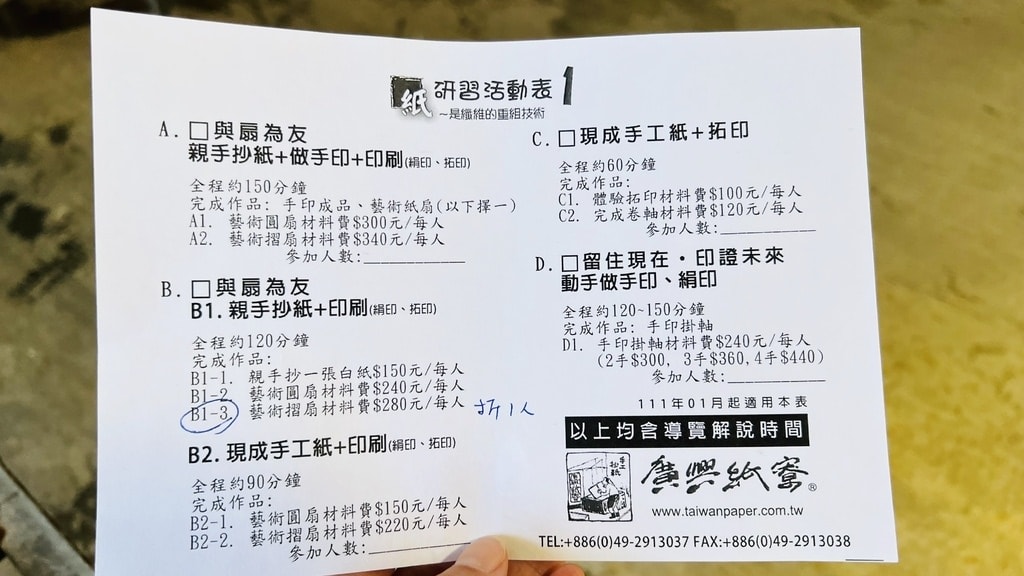 紙 研習活動表 1
~是纖維的重組技術
A. □與扇為友
親手抄紙+做手印+印刷(絹印、拓印)
全程約150分鐘
完成作品: 手印成品、藝術紙扇(以下擇一)
A1. 藝術圓扇材料費$300元/每人
A2. 藝術摺扇材料費$340元/每人
參加人數:__________
B. □與扇為友
B1. 親手抄紙+印刷(絹印、拓印)
全程約120分鐘
完成作品:
B1-1. 親手抄一張白紙$150元/每人
B1-2. 藝術圓扇材料費$240元/每人
B1-3. 藝術摺扇材料費$280元/每人 折1人
B2. 現成手工紙+印刷(絹印、拓印)
全程約90分鐘
完成作品:
B2-1. 藝術圓扇材料費$150元/每人
B2-2. 藝術摺扇材料費$220元/每人
參加人數:__________
C. □現成手工紙+拓印
全程約60分鐘
完成作品:
C1. 體驗拓印材料費$100元/每人
C2. 完成卷軸材料費$120元/每人
參加人數:__________
D. □留住現在・印證未來
動手做手印、絹印
全程約120~150分鐘
完成作品: 手印掛軸
D1. 手印掛軸材料費$240元/每人
(2手$300, 3手$360,4手$440)
參加人數:__________
111年01月起適用本表
以上均含導覽解說時間
廣興紙寮®
www.taiwanpaper.com.tw
TEL:+886(0)49-2913037 FAX:+886(0)49-2913038